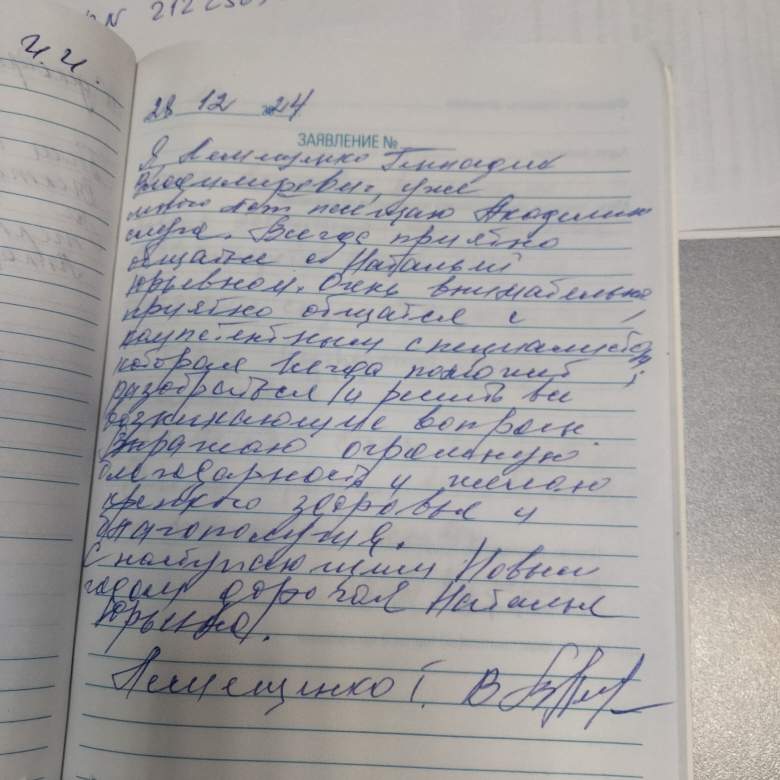 N 212
Ч.И.
28 12 24
ЗАЯВЛЕНИЕ №
Я, Лемещенко Геннадий
Владимирович, уже
много лет посещаю Академию
слуха. Всегда приятно
общаться с Натальей
Юрьевной. Очень внимательна,
приятно общатся с
компетентным специалистом,
которая всегда поможет
разобраться и решить все
возникающие вопросы.
Выражаю огромную
благодарность и желаю
крепкого здоровья и
благополучия.
С наступающим Новым
годом дорогая Наталья
Юрьевна.
Лемещенко Г. В